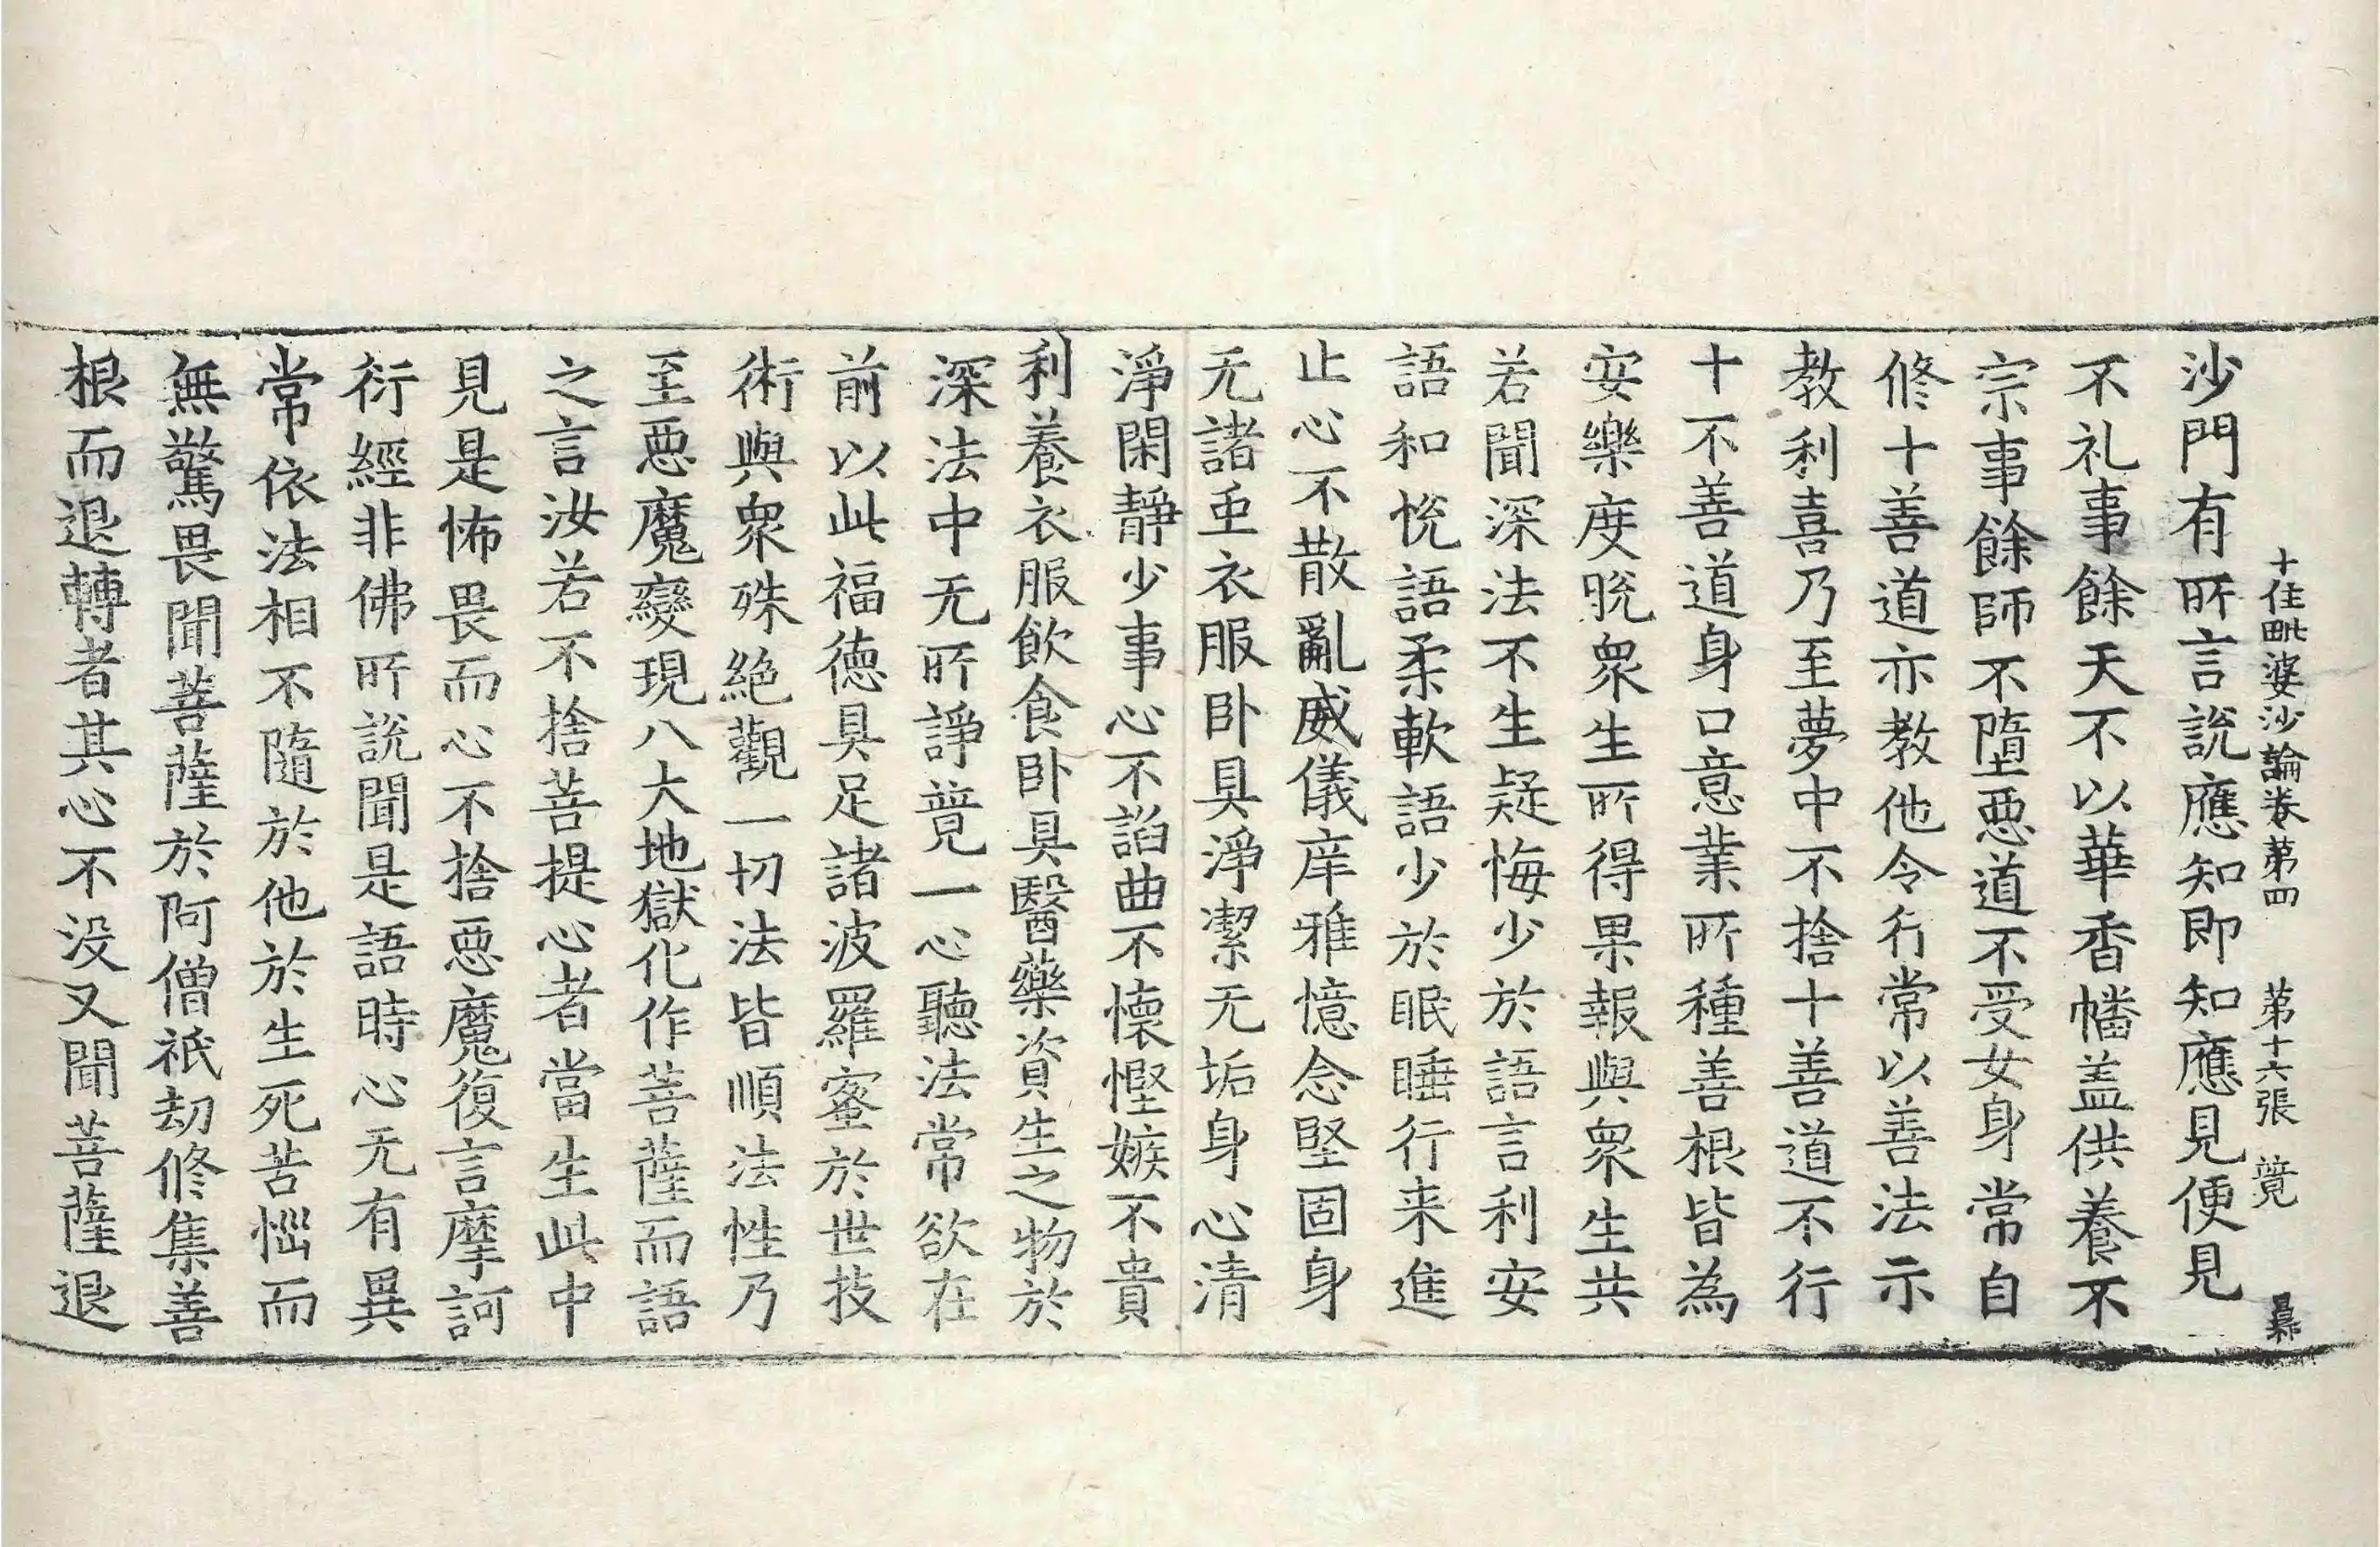 十住毗婆沙論卷第四 第十六張 竟
沙門有所言說應知即知應見便見
不礼事餘天不以華香幡盖供養不
宗事餘師不墮惡道不受女身常自
修十善道亦教他令行常以善法示
教利喜乃至夢中不捨十善道不行
十不善道身口意業所種善根皆為
安樂度脫衆生所得果報與衆生共
若聞深法不生疑悔少於語言利安
語和悅語柔軟語少於眠睡行来進
止心不散亂威儀庠雅憶念堅固身
无諸虫衣服卧具淨潔无垢身心清
淨閑靜少事心不諂曲不懷慳嫉不貴
利養衣服飲食卧具醫藥資生之物於
深法中无所諍竟一心聽法常欲在
前以此福德具足諸波羅蜜於世技
術與衆殊絶觀一切法皆順法性乃
至惡魔變現八大地獄化作菩薩而語
之言汝若不捨菩提心者當生此中
見是怖畏而心不捨惡魔復言摩訶
衍經非佛所說聞是語時心无有異
常依法相不隨於他於生死苦惱而
無驚畏聞菩薩於阿僧祇劫修集善
根而退轉者其心不没又聞菩薩退